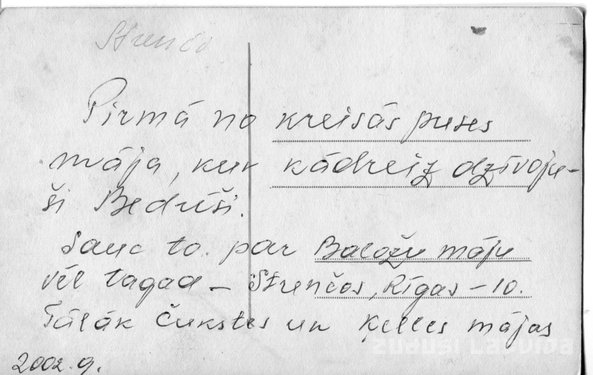 Strenči
Pirmā no kreisās puses
māja, kur kādreiz dzīvoju-
ši Bedrīši.
Sauc to par Baložu māju
vēl tagad - Strenčos, Rīgas - 10.
Tālāk Čukstes un Ķelles mājas
2002.g.
ZUDUSI LATVIJA